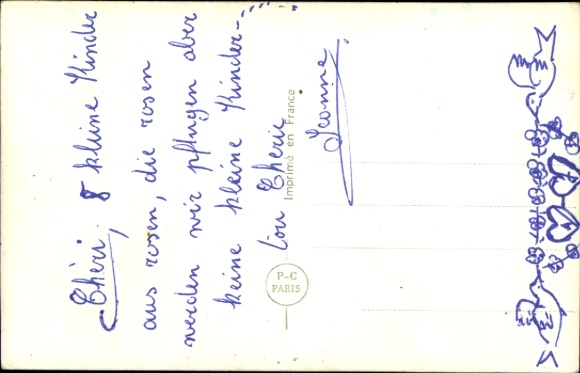 Chèri, 8 kleine Kinder
aus rosen, die rosen
werden wir pflugen aber
keine kleine Kinder-
ton Cherie
Jeanne.
Imprimé en France
P-C
PARIS